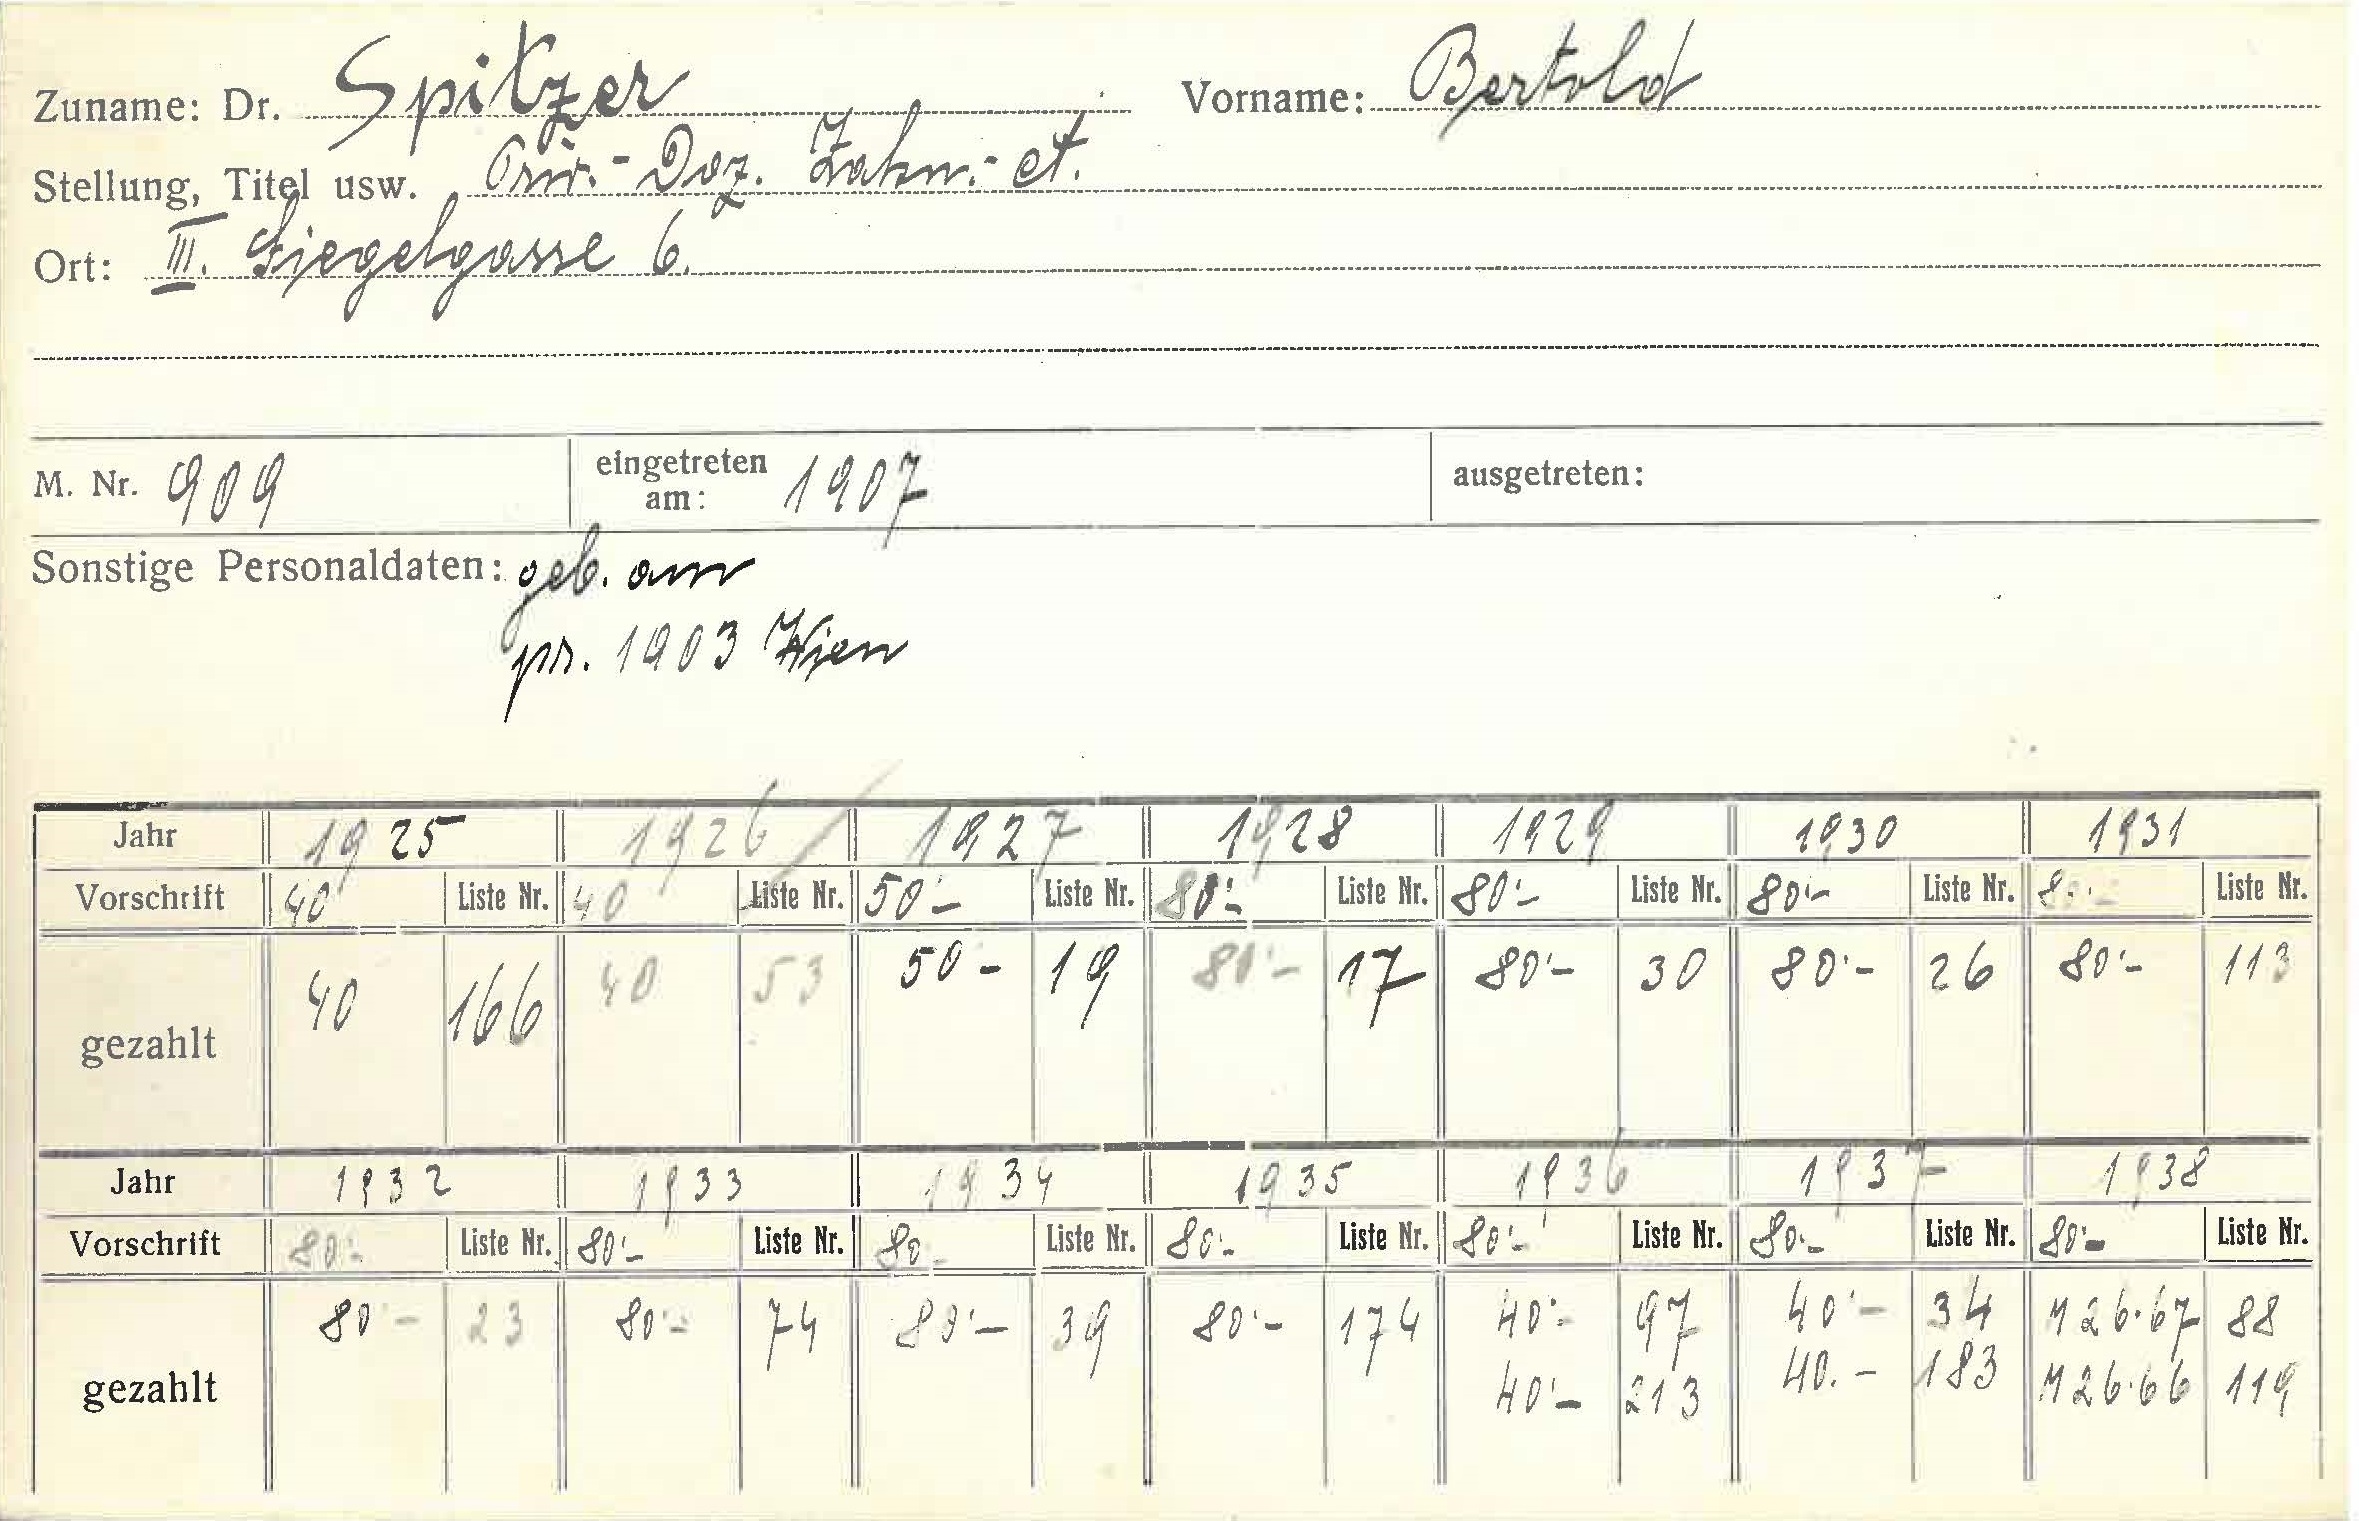 Zuname: Dr. Spitzer Vorname: Bertold
Stellung, Titel usw. Priv.-Doz. Zahn.- et.
Ort: III. Siegelgasse 6.
M. Nr. 909 eingetreten am: 1907 ausgetreten:
Sonstige Personaldaten: geb. am
pr. 1903 Wien
Jahr 1925 1926 1927 1928 1929 1930 1931
Vorschrift 40 Liste Nr. 40 Liste Nr. 50.- Liste Nr. 80.- Liste Nr. 80.- Liste Nr. 80.- Liste Nr. 80.- Liste Nr.
gezahlt 40 166 40 53 50- 19 80.- 17 80.- 30 80.- 26 80.- 113
Jahr 1932 1933 1934 1935 1936 1937 1938
Vorschrift 80.- Liste Nr. 80.- Liste Nr. 80.- Liste Nr. 80.- Liste Nr. 80.- Liste Nr. 80.- Liste Nr. 80.- Liste Nr.
gezahlt 80.- 23 80.- 74 80.- 39 80.- 174 40.- 97 40.- 34 M 26.67 88
40.- 213 40.- 183 M 26.66 119